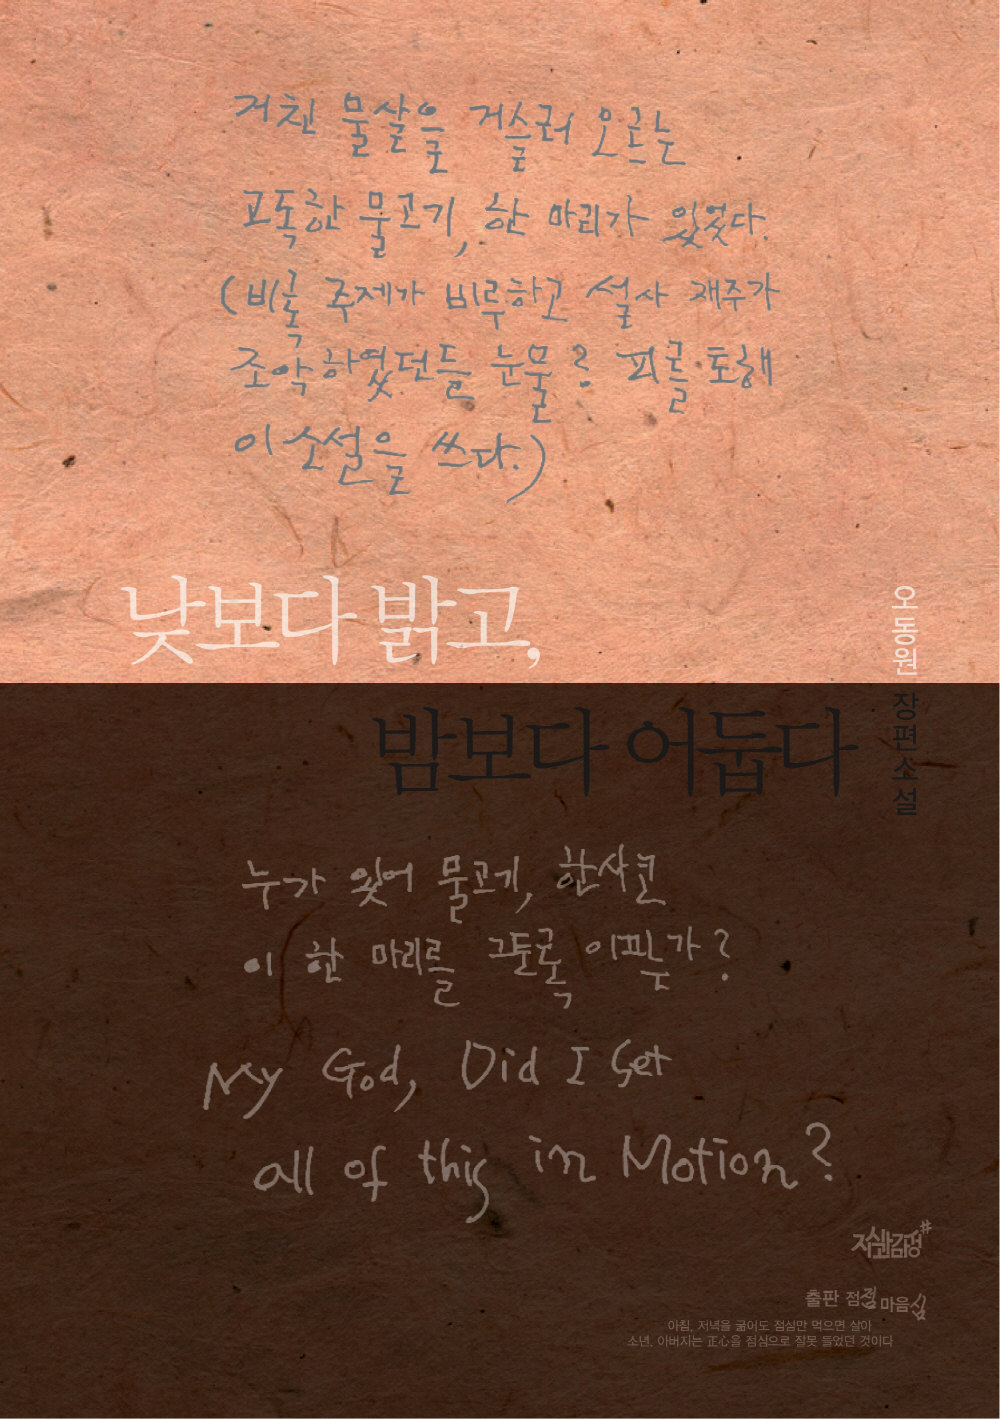 거친 물살을 거슬러 오르는
고독한 물고기, 한 마리가 있었다.
(비록 주제가 비루하고 설사 재주가
조악하였던들 눈물로 피를 토해
이 소설을 쓰다.)
낮보다 밝고,
오동원 장편소설
밤보다 어둡다
누가 있어 물고기, 한사코
이 한 마리를 그토록 이끌까?
My God, Did I Set
all of this in Motion?
출판 점점 마음심
아침, 저녁을 굶어도 점심만 먹으면 살아
소년, 아버지는 正心을 점심으로 잘못 들었던 것이다